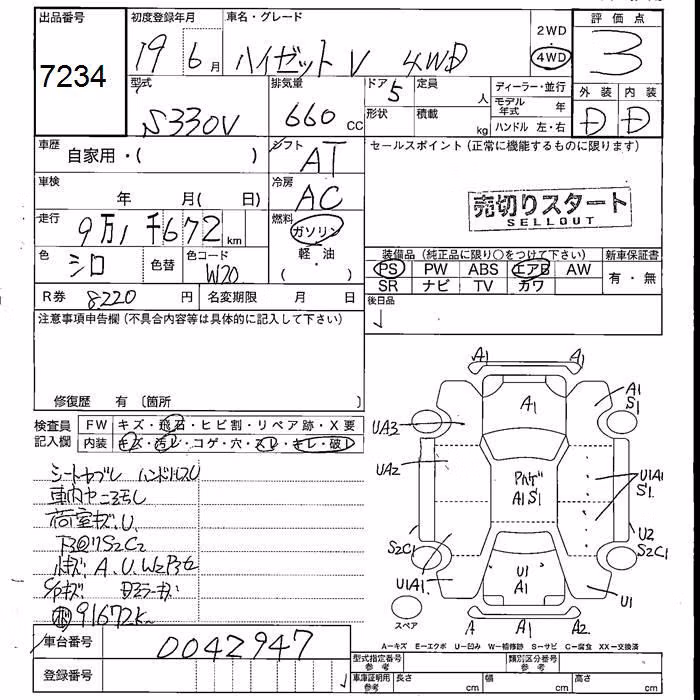 出品番号 初度登録年月 車名・グレード 2WD 評価点
7234 19年 6月 ハイゼット V 4WD 4WD 3
型式 排気量 ドア 5 定員 人 ディーラー・並行 外装 内装
S330V 660 CC 形状 積載 kg モデル年式 年 D D
ハンドル 左・右
車歴 自家用・( ) シフト AT セールスポイント (正常に機能するものに限ります)
車検 年 月( 日) 冷房 AC
売切りスタート
SELLOUT
走行 9万1千672 km 燃料 ガソリン
軽・油
( ・ )
色 シロ 色替 色コード W20
装備品 (純正品に限り○をつけて下さい) 新車保証書
PS PW ABS エアB AW 有・無
SR ナビ TV カワ
R券 8220 円 名変期限 月 日 後日品
注意事項申告欄 (不具合内容等は具体的に記入して下さい)
修復歴 有 〔箇所 〕
検査員 FW キズ・飛石・ヒビ割・リペア跡・X要
記入欄 内装 キズ・汚レ・コゲ・穴・スレ・キレ・破レ
車内ヤニ
荷室キズ.U.
S2C2
A.U.W2
91672K
A1 A1
A1 A1
S1
UA3
UA2 Pハゲ U1A1
A1S1 S1.
U2
S2C1 S2C1
U1A1 U1 A1 U1
スペア A A1 A2
A-キズ E-エクボ U-凹み W-補修跡 S-サビ C-腐食 XX-交換済
車台番号 0042947
型式指定番号 参考 類別区分番号 参考
登録番号 車庫証明用 参考 長さ cm 幅 cm 高さ cm